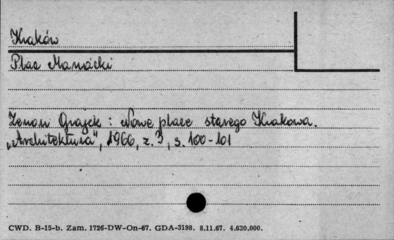 Kraków
Plac Mariacki
Zenon Grajek : Nowe place starego Krakowa.
„Architektura", 1966, z. 3, s. 100-101
CWD. B-15-b. Zam. 1726-DW-On-67. GDA-3198. 8.11.67. 4.630.000.